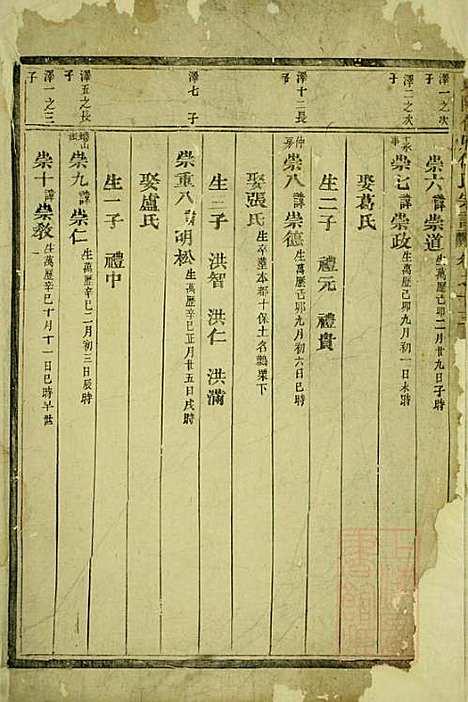 澤一之次
子
崇六 諱崇道 生萬歷己卯二月廿九日子時
澤二之次
子
崇七 諱崇政 生萬歷己卯九月初一日未時
娶葛氏
生二子 禮元 禮貴
澤十二長
子
崇八 諱崇德 生萬歷己卯九月初六日巳時
娶張氏 生卒墓本都十保土名鵝栗下
生三子 洪智 洪仁 洪滿
澤七子
崇重八 胡松 生萬歷辛巳正月廿五日戌時
娶盧氏
生一子 禮中
澤五之長
子
崇九 諱崇仁 生萬歷辛巳二月初三日辰時
澤一之三
子
崇十 諱崇教 生萬歷辛巳十月十一日巳時早世